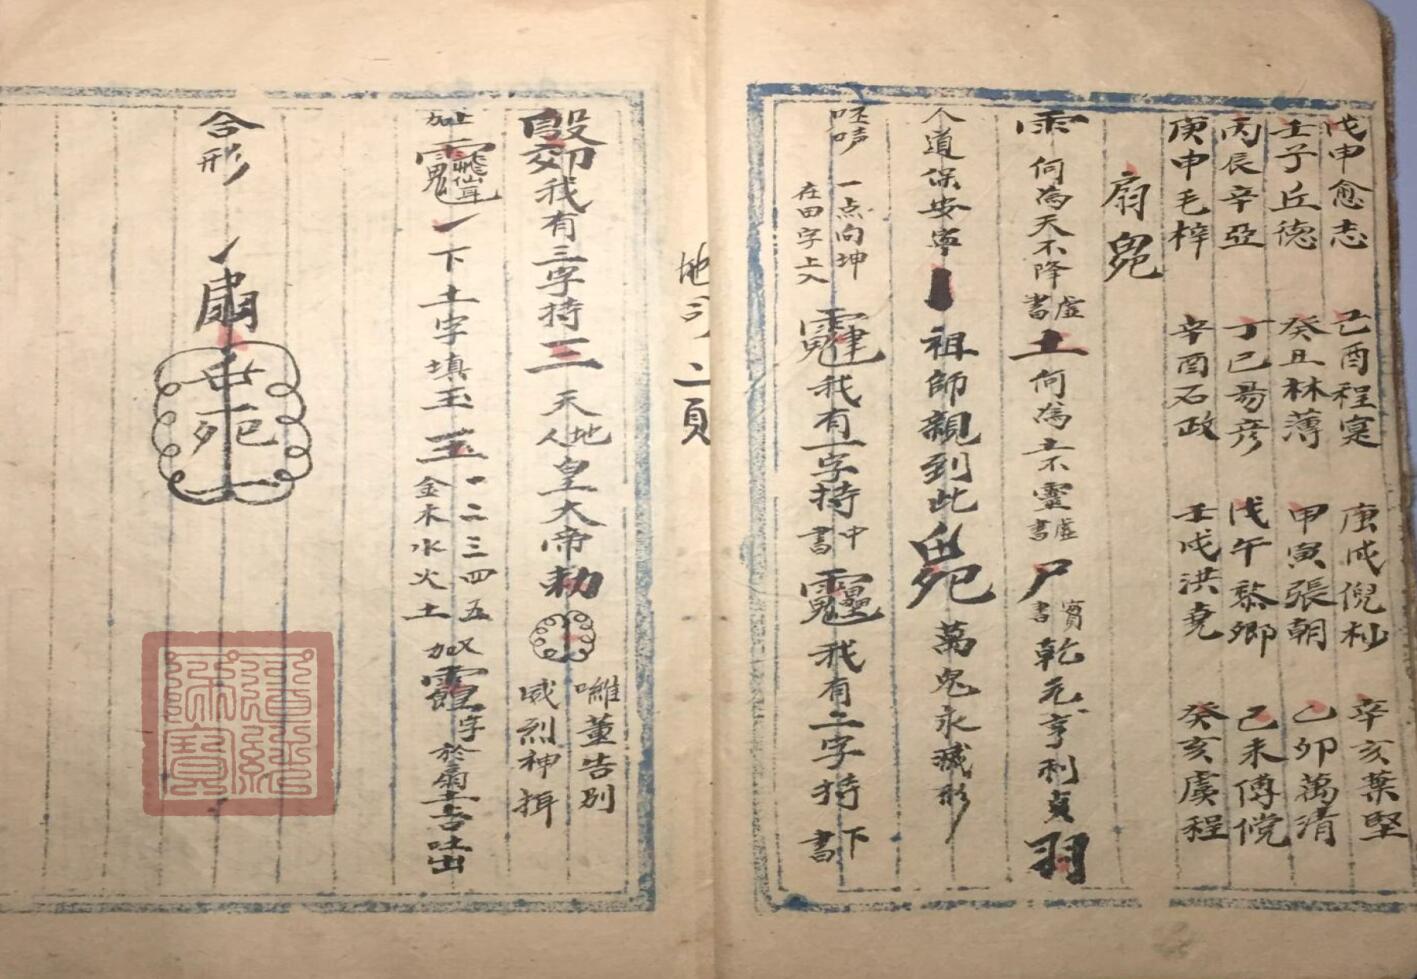 戊申愈志 己酉程寔 庚戌倪杉 辛亥葉堅
壬子丘德 癸丑林薄 甲寅張朝 乙卯萬清
丙辰辛亞 丁巳易彥 戊午黎卿 己未傅儻
庚申毛梓 辛酉石政 壬戌洪堯 癸亥虞程
扇
雨 何為天不降 虛書 土 何為土不靈 虛書 尸 實書 乾元亨利貞 羽
人道保安寧 丨 祖師親到此 萬鬼永滅形
呸唠 一点向坤 在田字上入 我有一字持 中書 我有二字持 下書
地司二頁
我有三字持 三 天地人皇大帝勅 威烈神揖 董告別
加上 丶下土字填玉 玉 一二三四五 金木水火土 又加 字於扇 吐出
合形
道經師寶